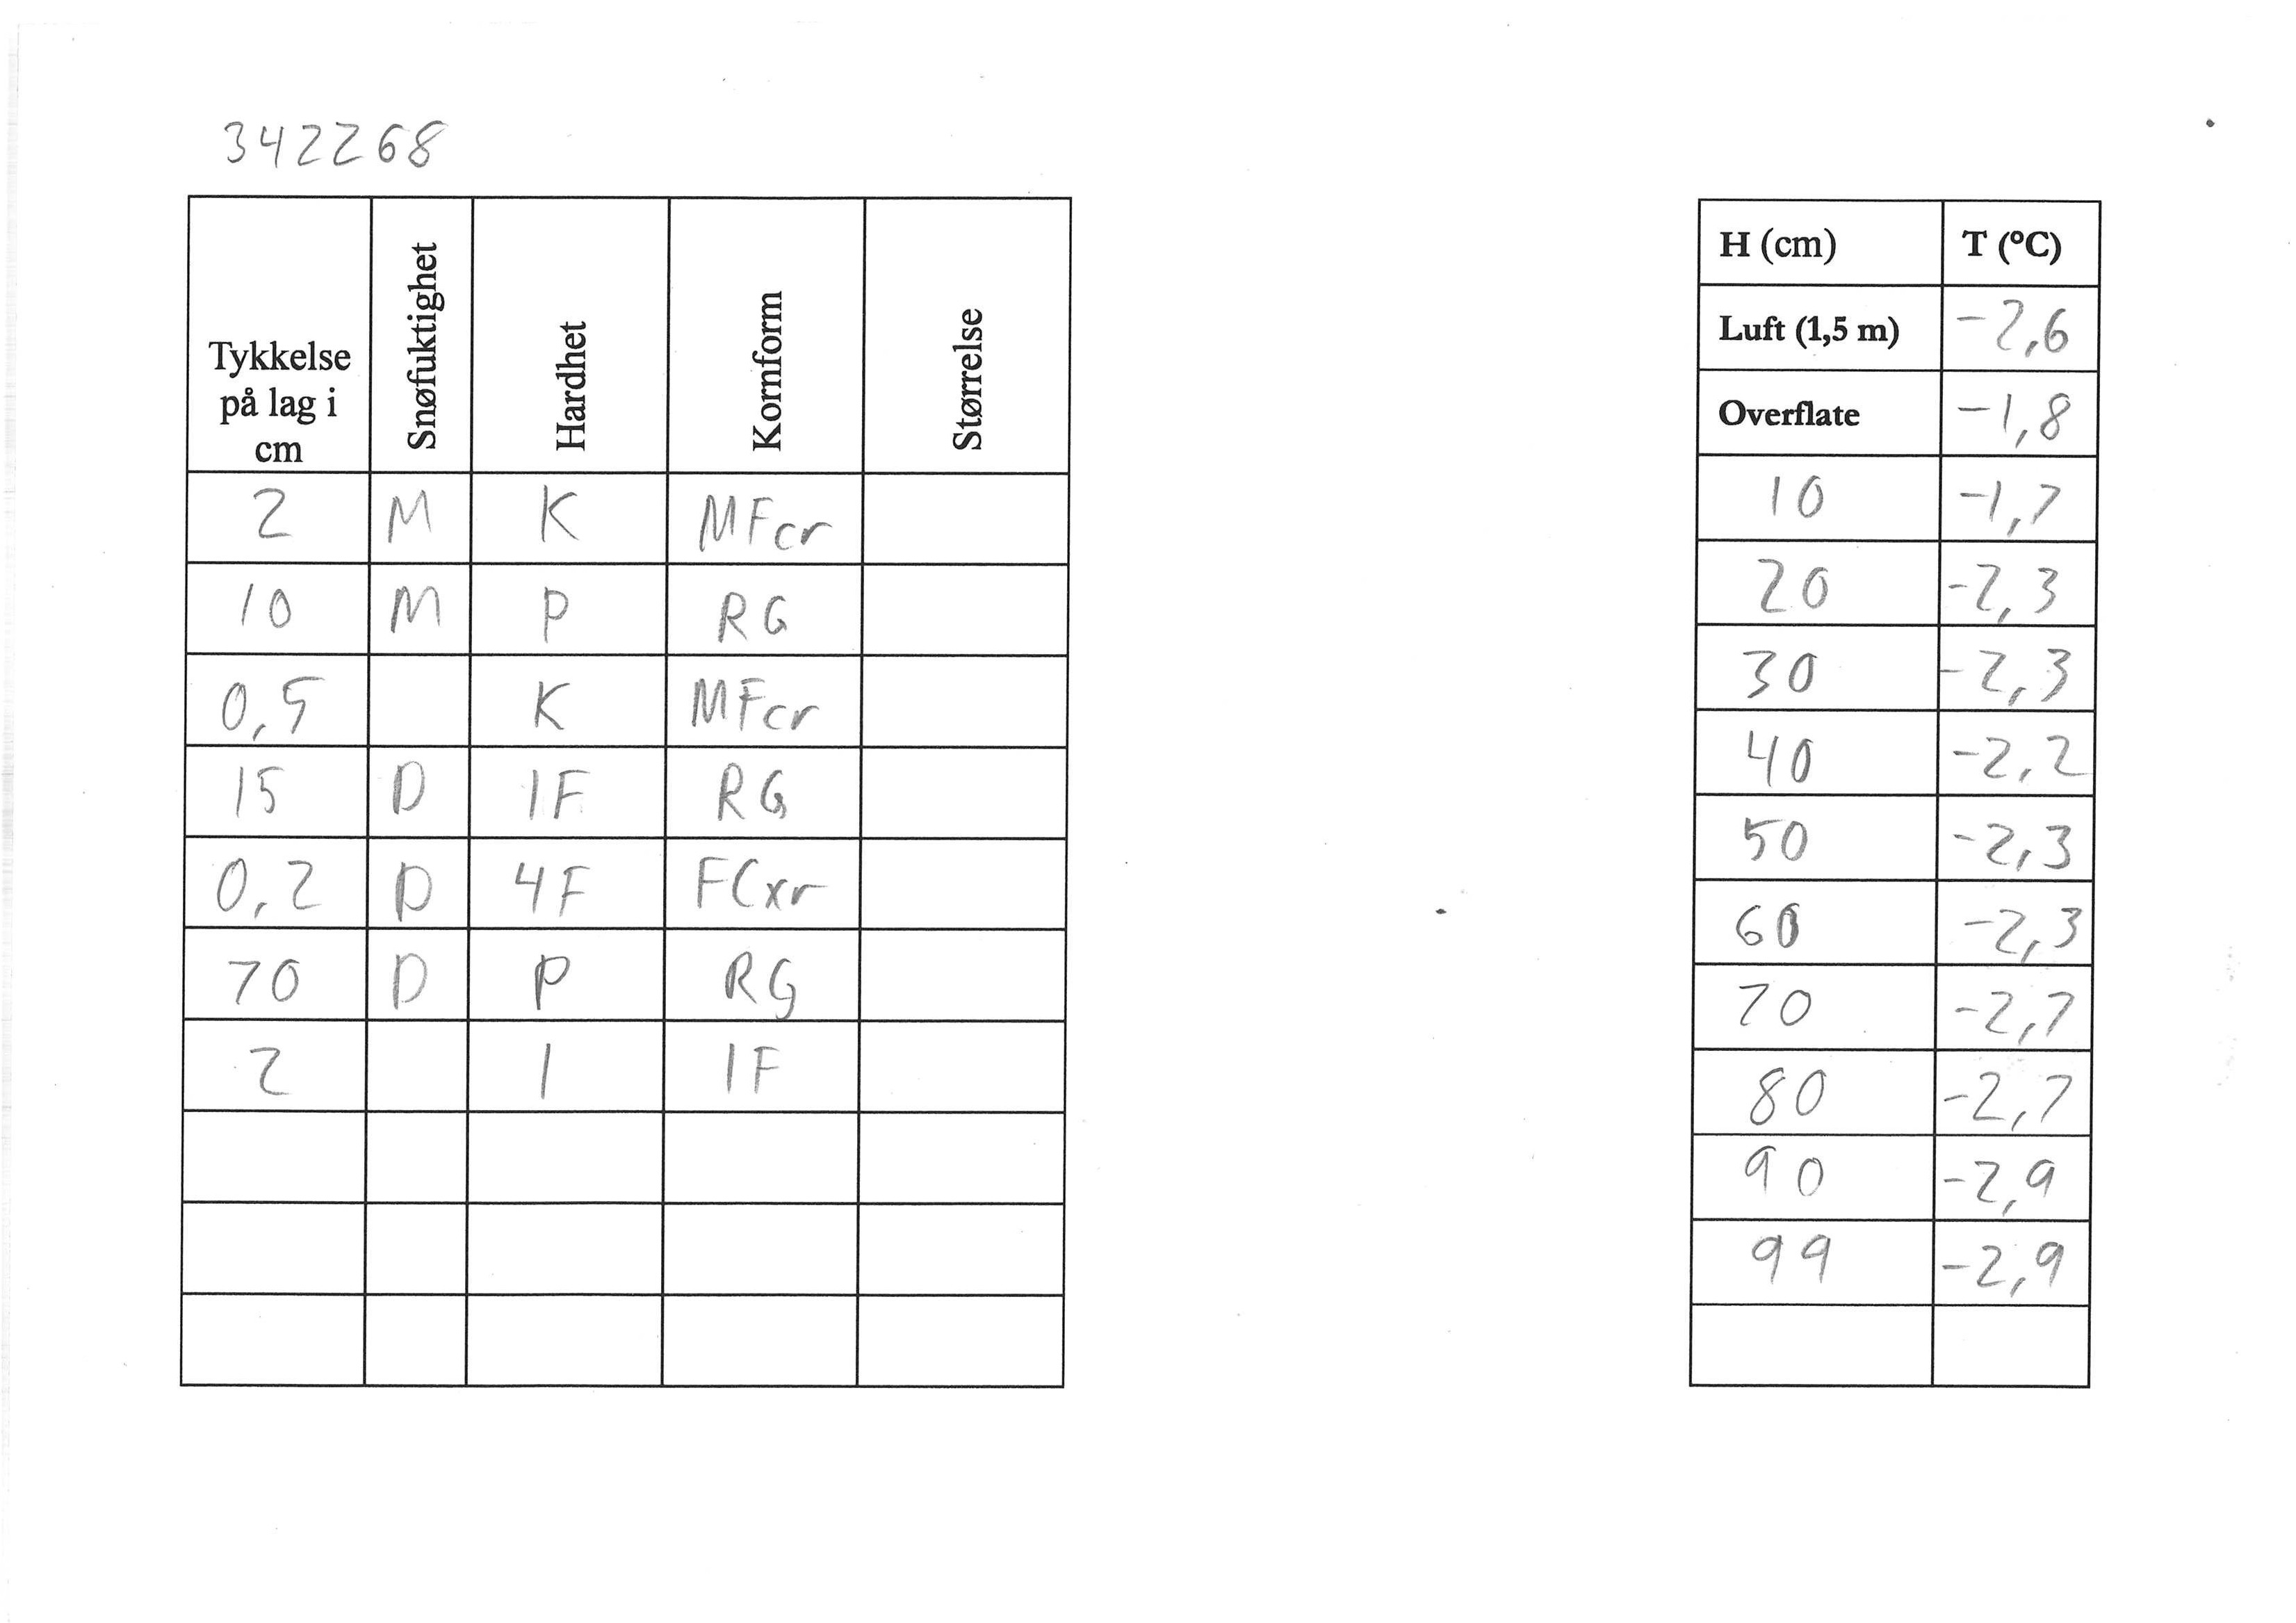 342268
Tykkelse på lag i cm Snøfuktighet Hardhet Kornform Størrelse
2 M K MFcr
10 M P RG
0,5 K MFcr
15 D 1F RG
0,2 D 4F FCxr
70 D P RG
2 I IF
H (cm) T (°C)
Luft (1,5 m) -2,6
Overflate -1,8
10 -1,7
20 -2,3
30 -2,3
40 -2,2
50 -2,3
60 -2,3
70 -2,7
80 -2,7
90 -2,9
99 -2,9